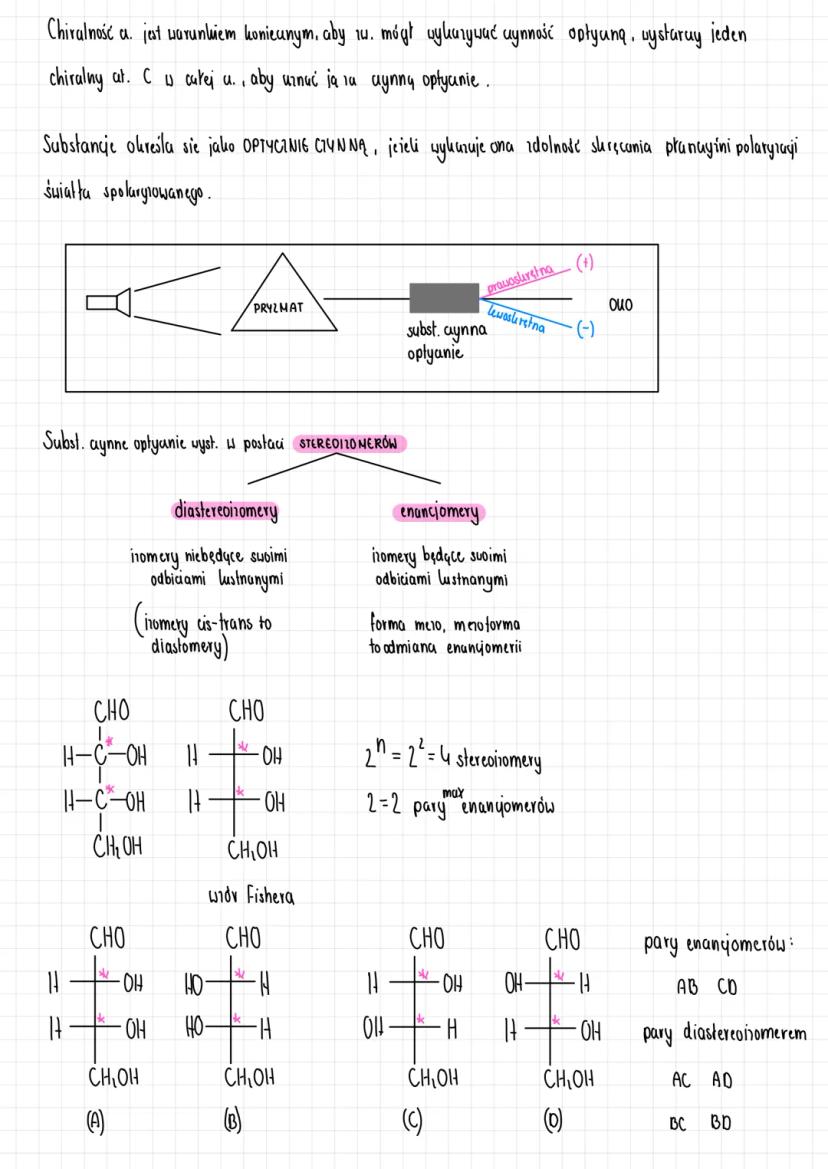 Chiralność cz. jest warunkiem koniecznym, aby zw. mógł wykazywać czynność optyczną, wystarczy jeden
chiralny at. C w całej cz., aby uznać ją za czynną optycznie.
Substancje określa sie jako OPTYCZNIE CZYNNĄ, jeżeli wykazuje ona zdolność skręcania płaszczyźni polaryzacji
światła spolaryzowanego.
PRYZMAT
prawoskrętna
(+)
lewoskrętna
(-)
OKO
subst. czynna
optycznie
Subst. czynne optycznie wyst. w postaci STEREOIZOMERÓW
diastereoizomery
enancjomery
izomery niebędące swoimi
odbiciami lustrzanymi
izomery będące swoimi
odbiciami lustrzanymi
(izomery cis-trans to
diastomery)
forma mezo, mezoforma
to odmiana enancjomerii
CHO
H-C*-OH
H-C*-OH
CH₂OH
CHO
H * OH
H * OH
CH₂OH
2ⁿ = 2² = 4 stereoizomery
2=2 pary max enancjomerów
wzór Fishera
CHO
H * OH
H * OH
CH₂OH
(A)
CHO
HO * H
HO * H
CH₂OH
(B)
CHO
H * OH
OH * H
CH₂OH
(C)
CHO
OH * H
H * OH
CH₂OH
(D)
pary enancjomerów:
AB CD
pary diastereoizomerem
AC AD
BC BD